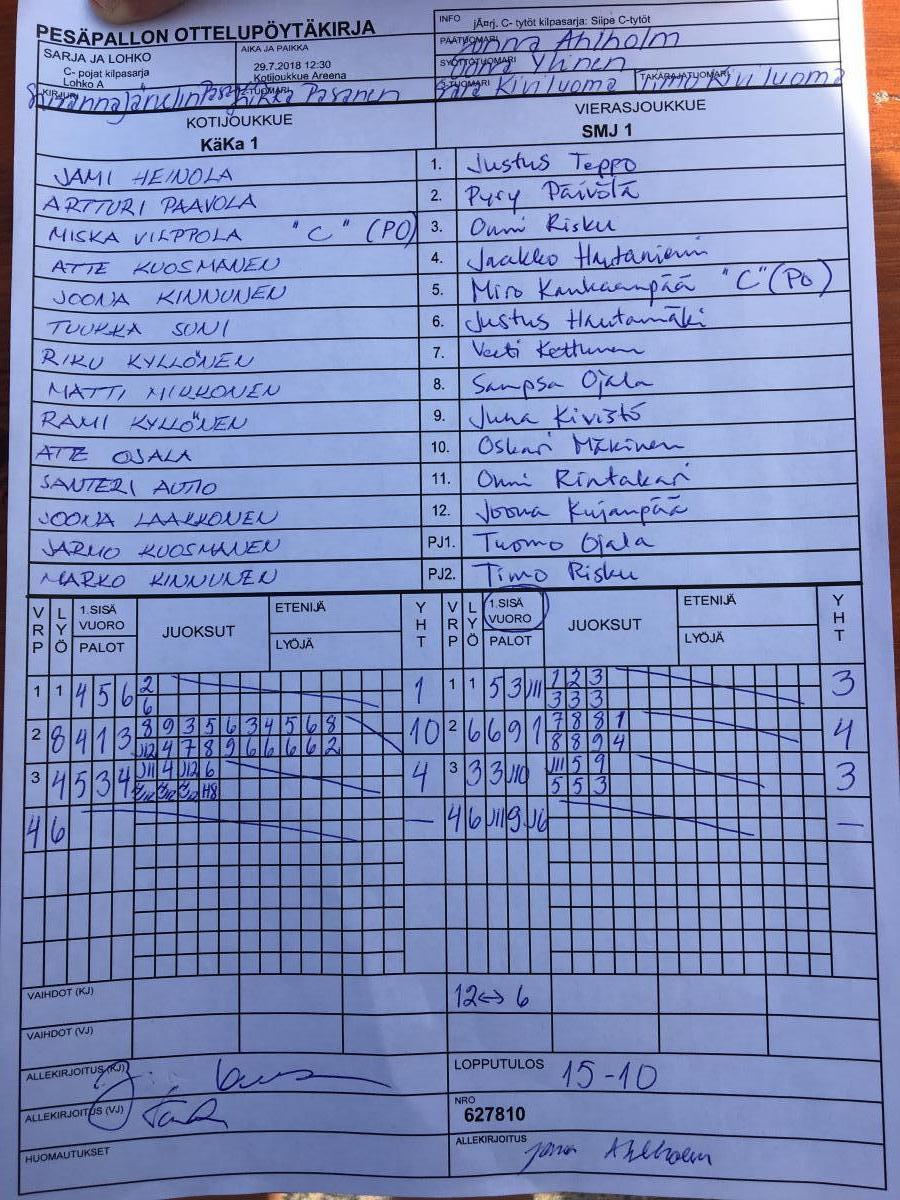 PESÄPALLON OTTELUPÖYTÄKIRJA
INFO jÃ¤rj. C- tytöt kilpasarja: Siipe C-tytöt
SARJA JA LOHKO
C- pojat kilpasarja
Lohko A
AIKA JA PAIKKA
29.7.2018 12:30
Kotijoukkue Areena
PÄÄTUOMARI Ahlholm
SYÖTTÖTUOMARI Ylinen
KIRJURI
2-TUOMARI Pasanen
3-TUOMARI Kiviluoma
TAKARAJATUOMARI Timo Kiviluoma
KOTIJOUKKUE
KäKa 1
VIERASJOUKKUE
SMJ 1
JAMI HEINOLA 1. Justus Teppo
ARTTURI PAAVOLA 2. Pyry Päivölä
MISKA VILPPOLA "C" (PO) 3. Onni Risku
ATTE KUOSMANEN 4. Jaakko Hautaniemi
JOONA KINNUNEN 5. Miro Kankaanpää "C" (PO)
TUUKKA SUNI 6. Justus Hautamäki
RIKU KYLLÖNEN 7. Veeti Kettunen
MATTI MIKKONEN 8. Sampsa Ojala
RAMI KYLLÖNEN 9. Juha Kivistö
ATTE OJALA 10. Oskari Mäkinen
SANTERI AUTIO 11. Onni Rintakari
JOONA LAAKKONEN 12. Joona Kujanpää
JARMO KUOSMANEN PJ1. Tuomo Ojala
MARKO KINNUNEN PJ2. Timo Risku
VRP LYÖ 1.SISÄ VUORO PALOT JUOKSUT ETENIJÄ LYÖJÄ YHT VRP LYÖ 1.SISÄ VUORO PALOT JUOKSUT ETENIJÄ LYÖJÄ YHT
1 1 4 5 6 2 1 1 1 5 3 J11 1 2 3 3
6 3 3 3
2 8 4 1 3 8 9 3 5 6 3 4 5 6 8 10 2 6 6 9 1 7 8 8 1 4
J12 4 7 8 9 6 6 6 6 2 8 8 9 4
3 4 5 3 4 J11 4 J12 6 4 3 3 3 J10 J11 5 9 3
H8 5 5 3
4 6 — 4 6 J11 9 J6 —
VAIHDOT (KJ) 12↔6
VAIHDOT (VJ)
ALLEKIRJOITUS (KJ)
LOPPUTULOS 15-10
ALLEKIRJOITUS (VJ)
NRO
627810
HUOMAUTUKSET
ALLEKIRJOITUS Ahlholm